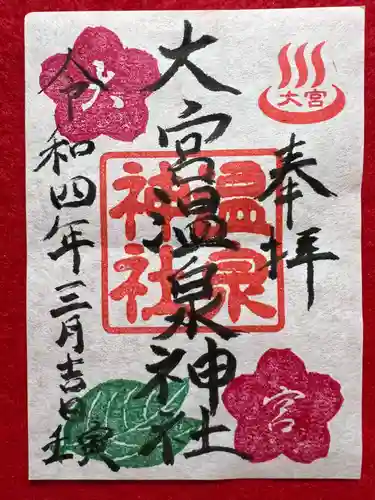 奉拝
大宮
大宮温泉神社
温泉
神社
大
宮
令和四年三月吉日
壬寅